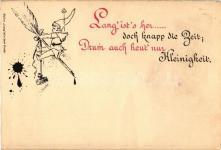 Lang' ist's her......
doch knapp die Zeit;
Drum auch heut' nur
Kleinigkeit.